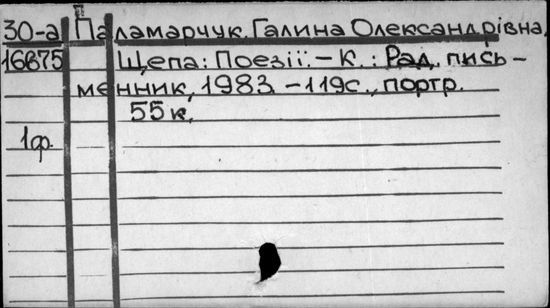 30-а Паламарчук Галина Олександрівна,
16875 Щепа: Поезії. – К.: Рад. пись-
менник, 1983. – 119с., портр.
55к.
1ф.